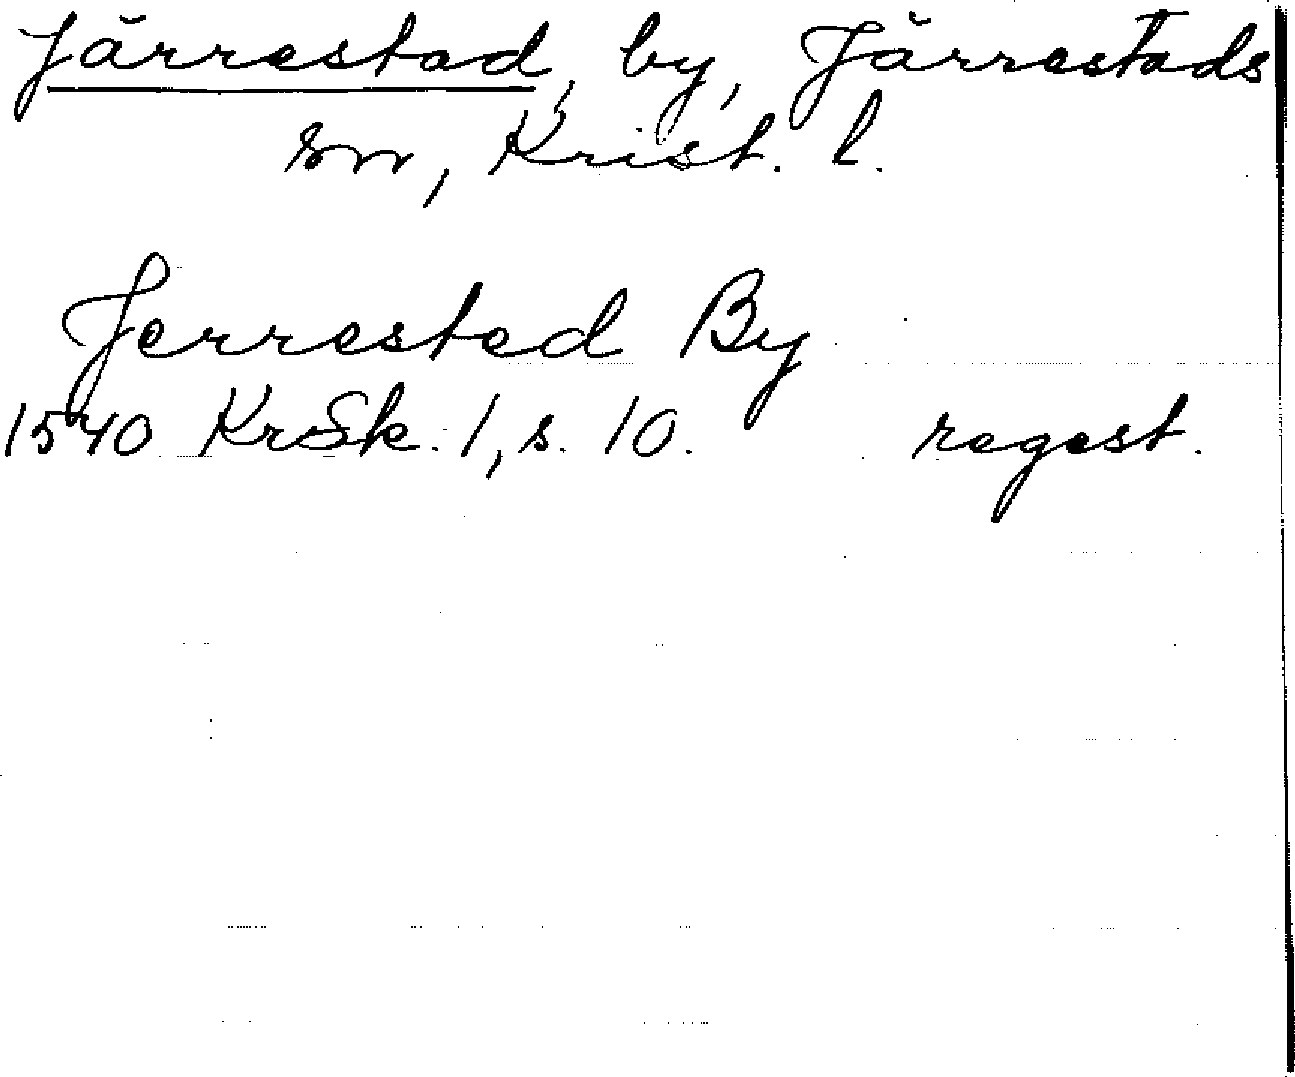 Järrestad, by, Järrestads
sn, Krist. l.
Jerrested By
1540 KrSk. 1, s. 10. regest.